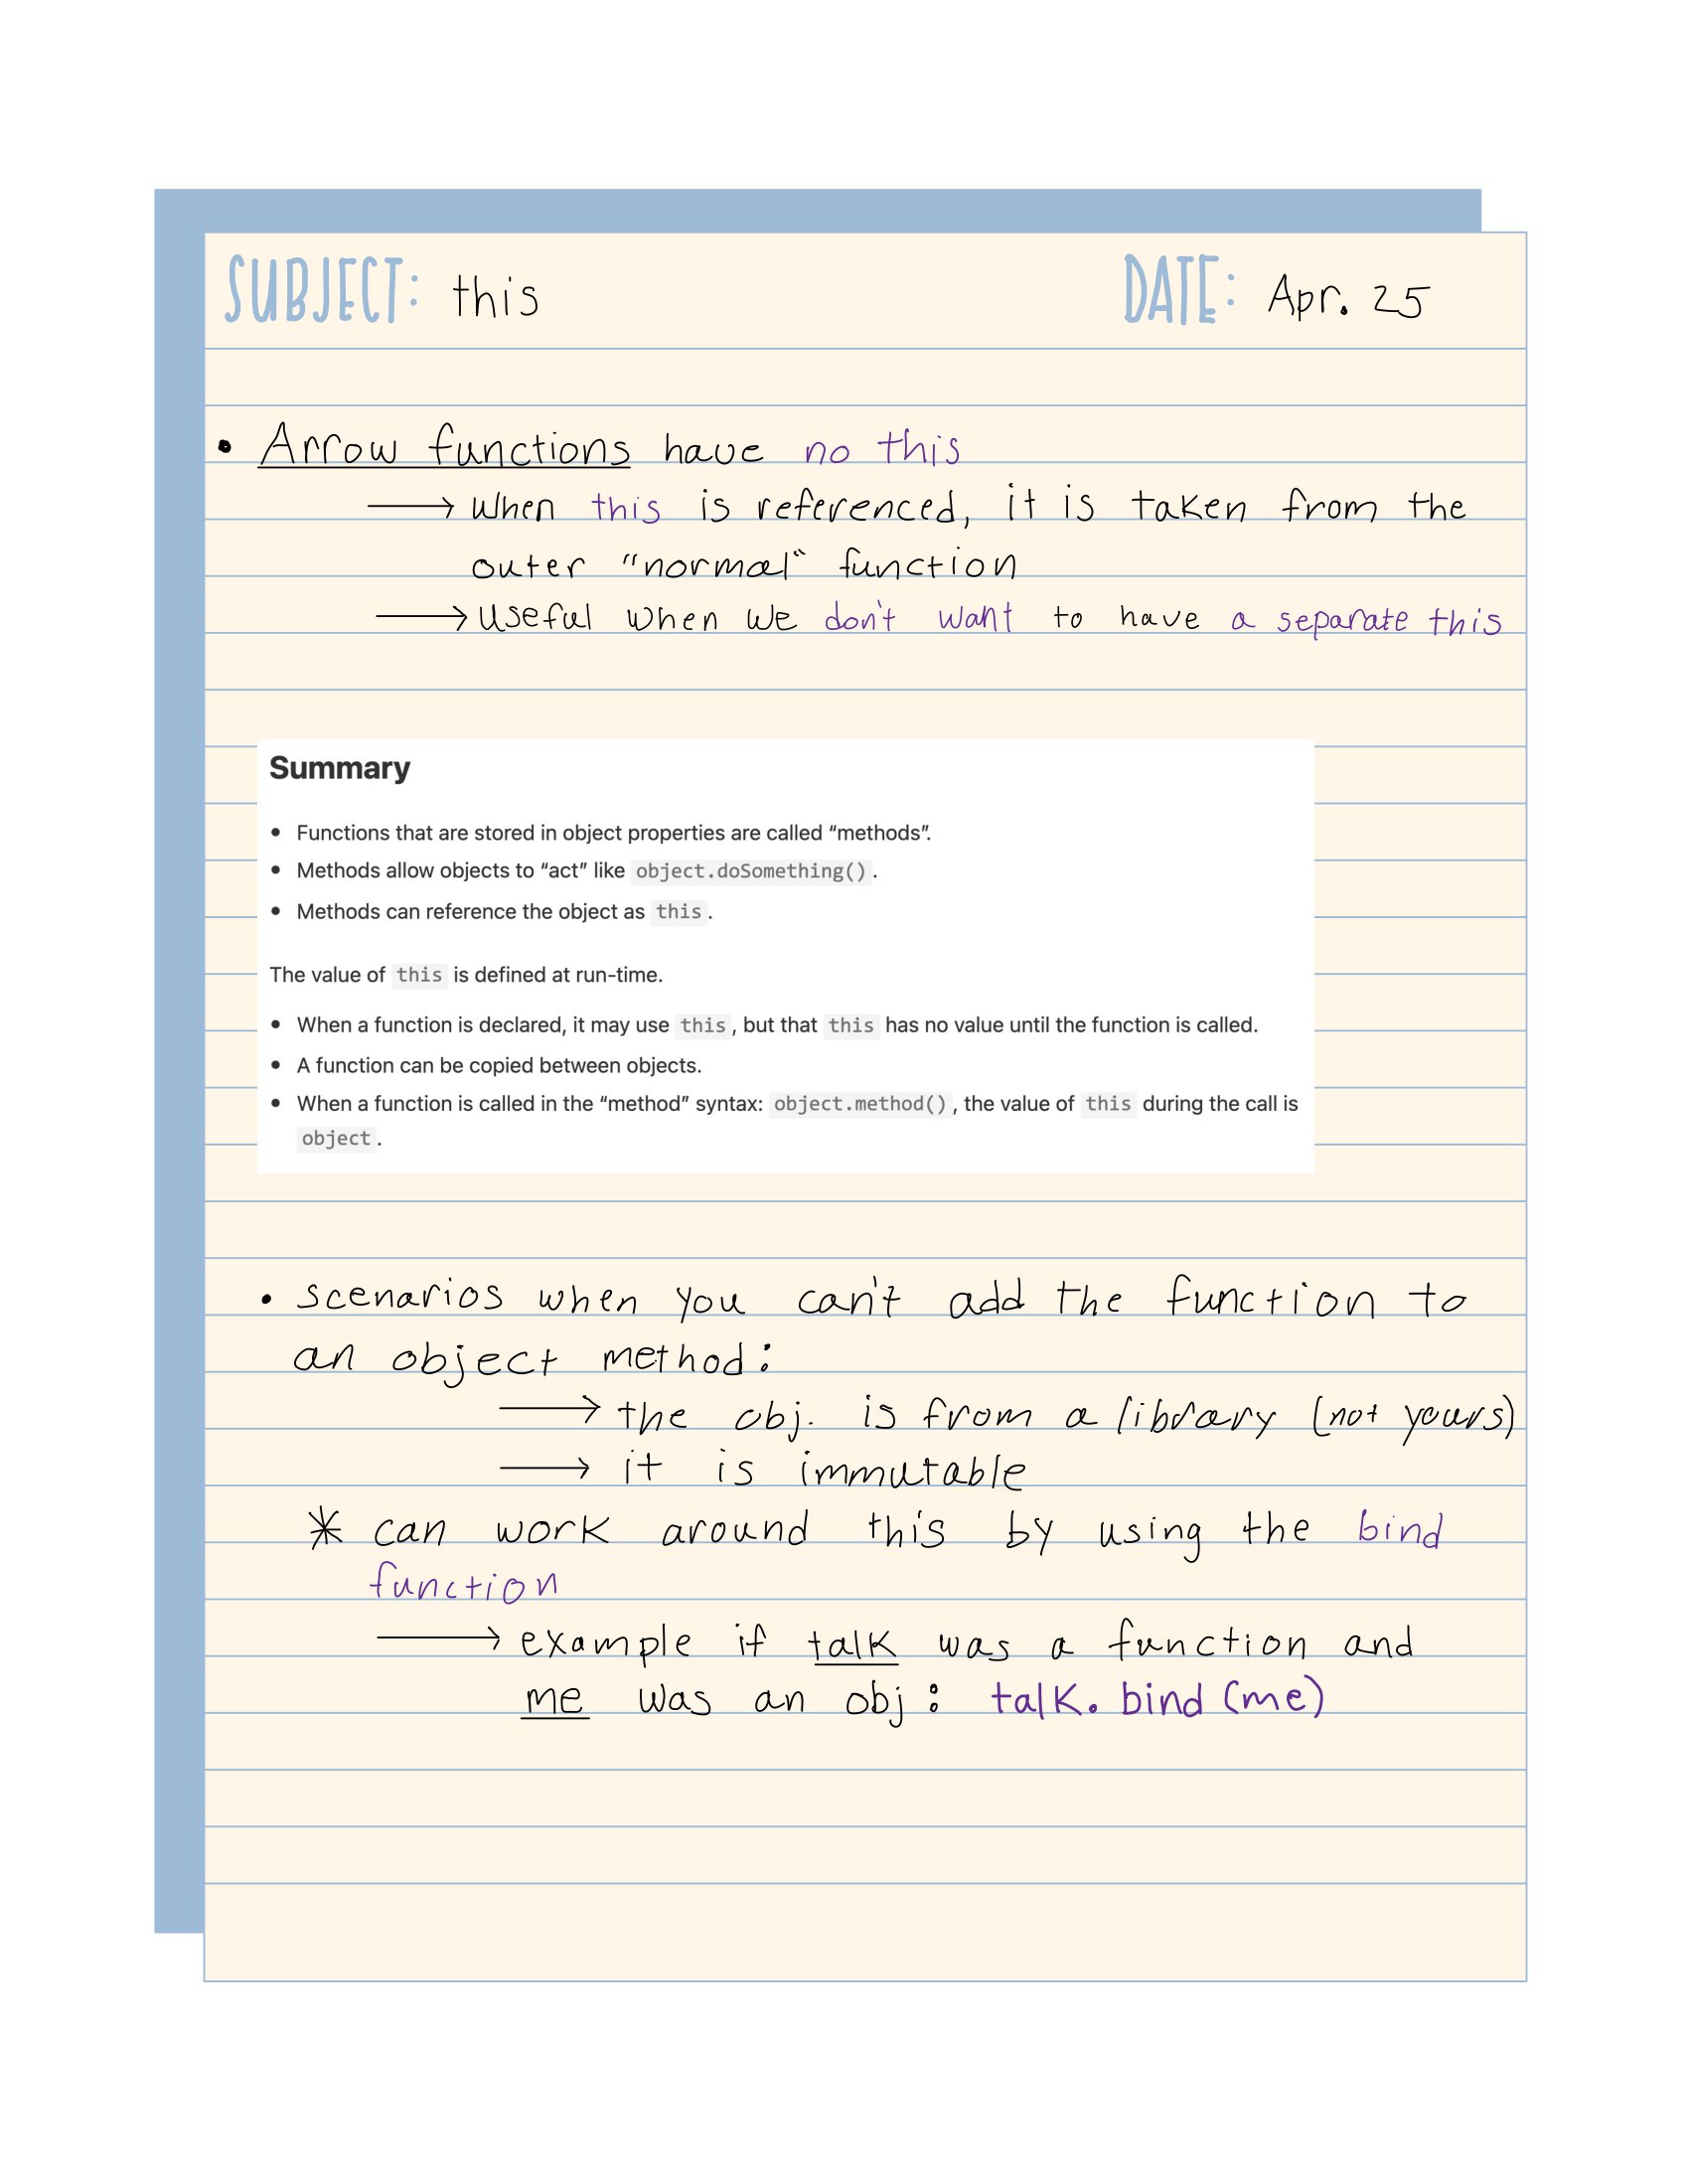 SUBJECT: this DATE: Apr. 25
• Arrow functions have no this
→ When this is referenced, it is taken from the
outer "normal" function
→ Useful when we don't want to have a separate this
Summary
• Functions that are stored in object properties are called “methods”.
• Methods allow objects to “act” like object.doSomething().
• Methods can reference the object as this.
The value of this is defined at run-time.
• When a function is declared, it may use this, but that this has no value until the function is called.
• A function can be copied between objects.
• When a function is called in the “method” syntax: object.method(), the value of this during the call is
object.
• scenarios when you can't add the function to
an object method:
→ the obj. is from a library (not yours)
→ it is immutable
* can work around this by using the bind
function
→ example if talk was a function and
me was an obj: talk.bind(me)